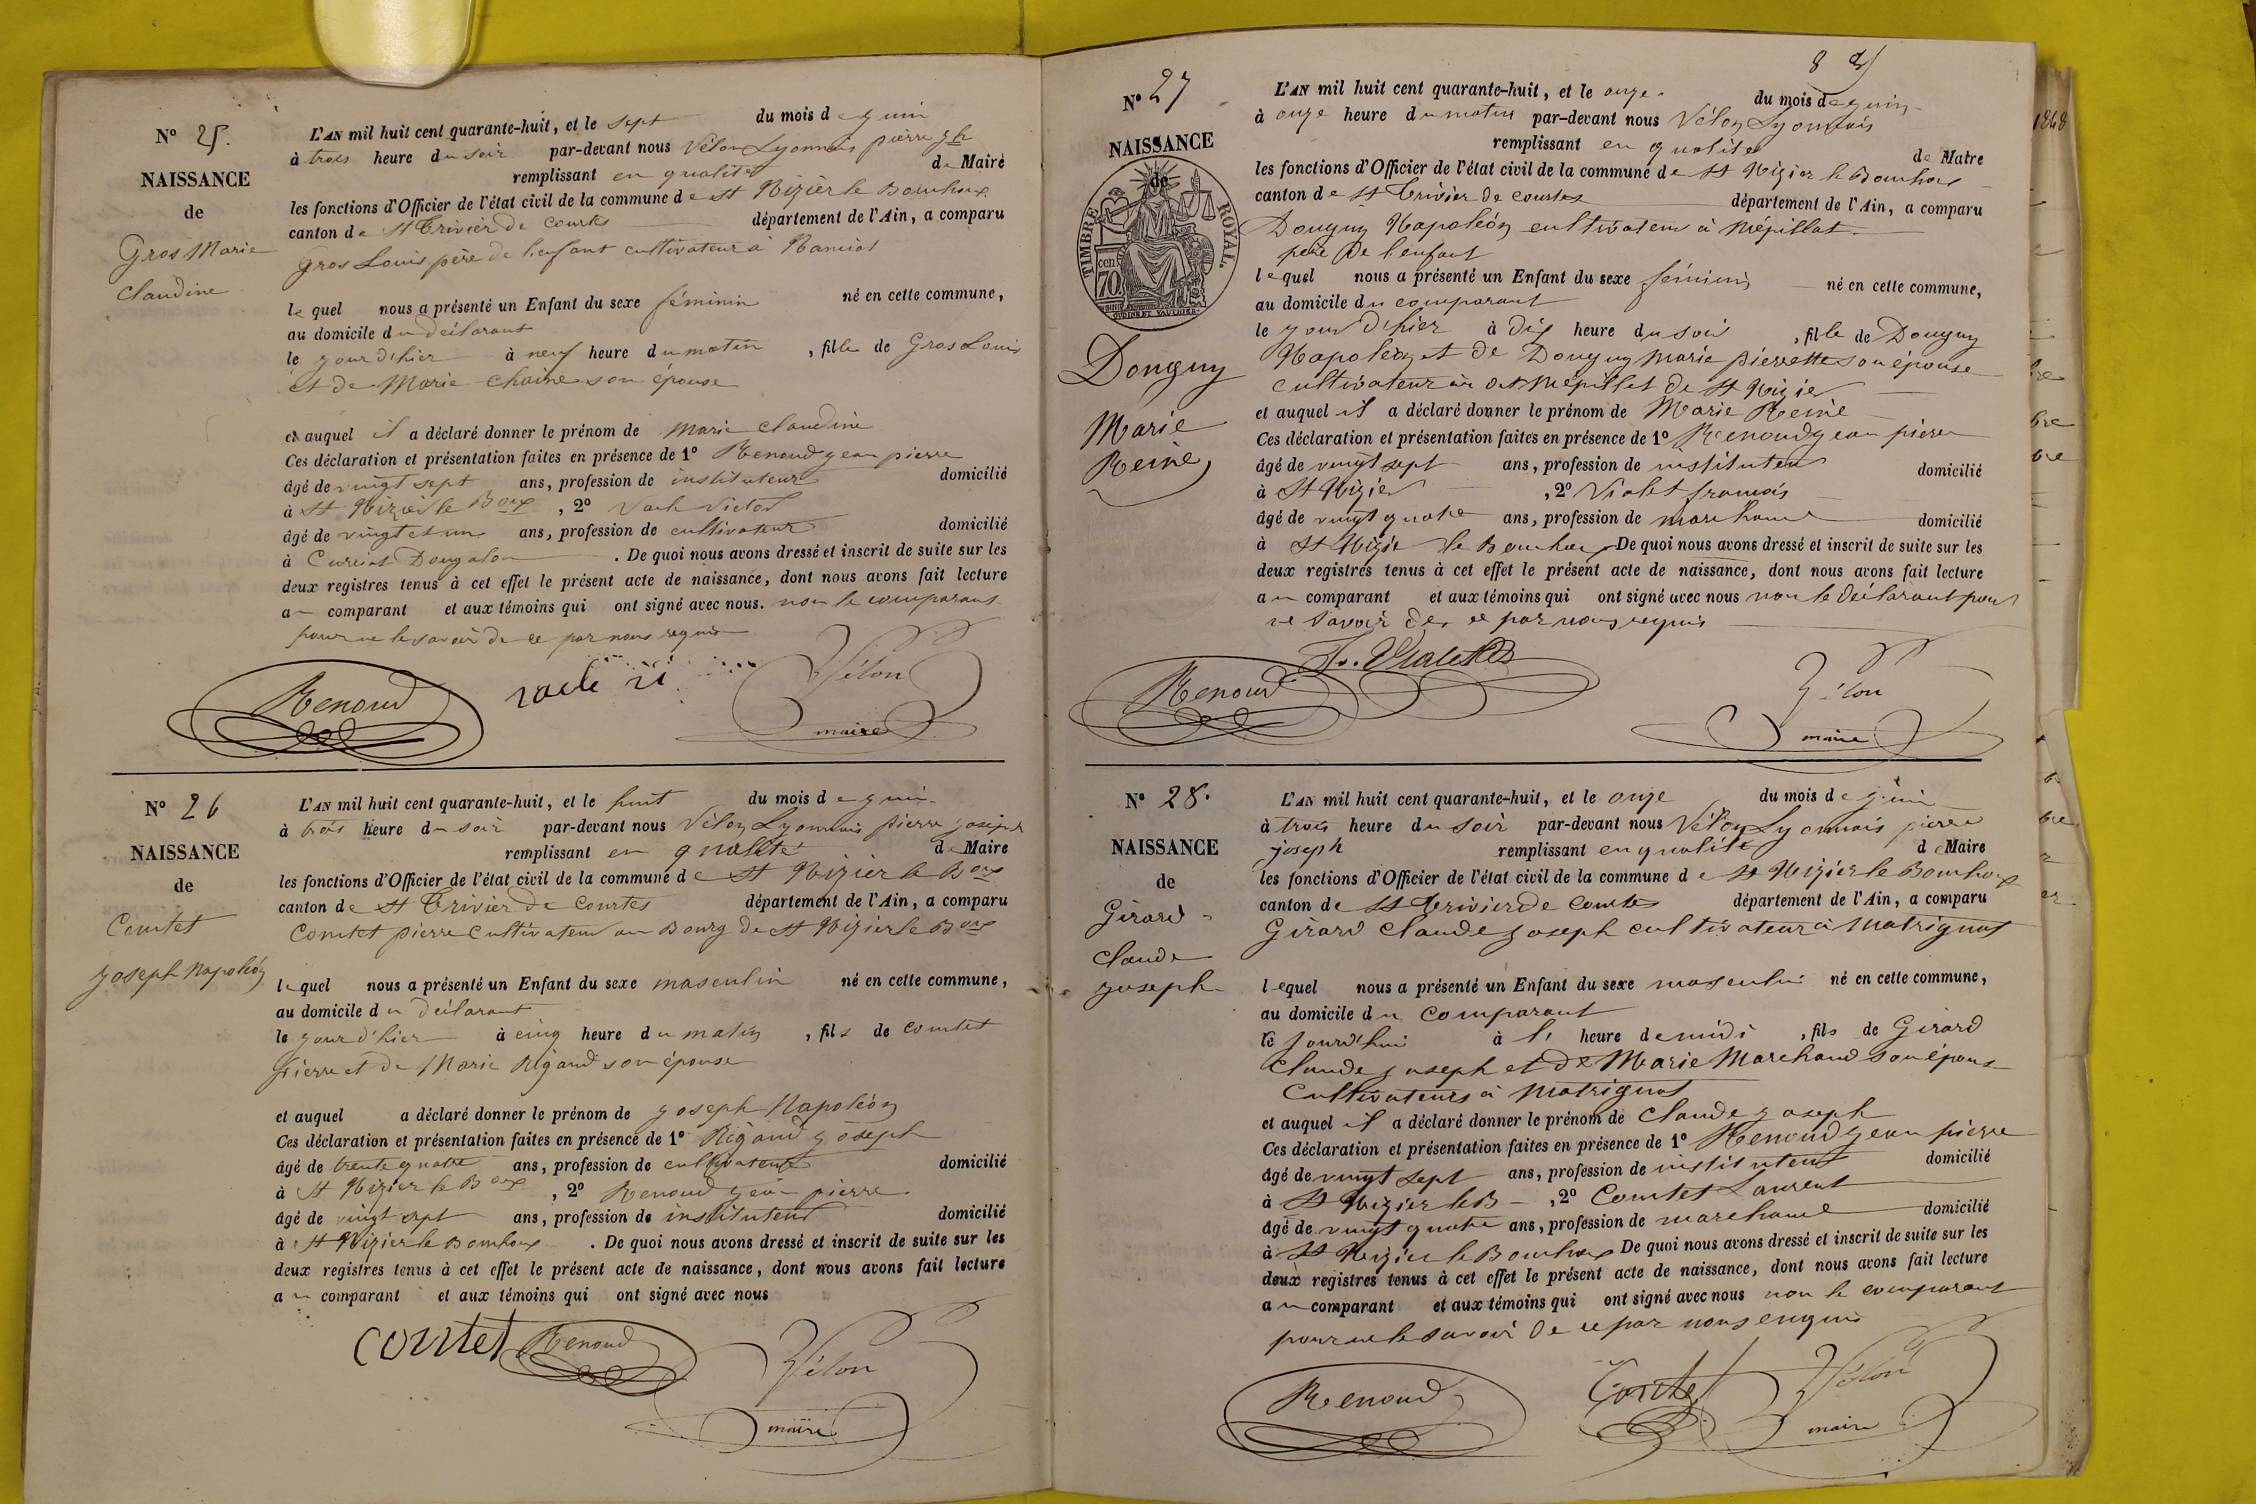 N° 25.
NAISSANCE
de
Gros Marie
Claudine
L'AN mil huit cent quarante-huit, et le sept du mois de juin
à trois heure du soir par-devant nous Vélon Lyonnais pierre jph
remplissant en qualité de Maire
les fonctions d'Officier de l'état civil de la commune de St Nizier le Bouchoux
canton de St Trivier de Courtes département de l'Ain, a comparu
Gros Louis père de l'enfant cultivateur à
lequel nous a présenté un Enfant du sexe féminin né en cette commune,
au domicile du déclarant
le jour d'hier à neuf heure du matin, fille de Gros Louis
et de Marie Chaine son épouse
et auquel il a déclaré donner le prénom de Marie Claudine
Ces déclaration et présentation faites en présence de 1° Renoud jean pierre
âgé de vingt sept ans, profession de instituteur domicilié
à St Nizier le Boux, 2° Victor
âgé de vingt et un ans, profession de cultivateur domicilié
à Curciat Dongalon. De quoi nous avons dressé et inscrit de suite sur les
deux registres tenus à cet effet le présent acte de naissance, dont nous avons fait lecture
au comparant et aux témoins qui ont signé avec nous. non le comparant
pour ne le savoir de ce par nous requis
Renoud
Vélon
maire
N° 26
NAISSANCE
de
Comtet
Joseph Napoléon
L'AN mil huit cent quarante-huit, et le huit du mois de juin
à trois heure du soir par-devant nous Vélon Lyonnais pierre joseph
remplissant en qualité de Maire
les fonctions d'Officier de l'état civil de la commune de St Nizier le Boux
canton de St Trivier de Courtes département de l'Ain, a comparu
Comtet pierre Cultivateur au Bourg de St Nizier le Boux
lequel nous a présenté un Enfant du sexe masculin né en cette commune,
au domicile du déclarant
le jour d'hier à cinq heure du matin, fils de Comtet
pierre et de Marie Rigaud son épouse
et auquel a déclaré donner le prénom de joseph Napoléon
Ces déclaration et présentation faites en présence de 1° Rigaud joseph
âgé de trente quatre ans, profession de cultivateur domicilié
à St Nizier le Boux, 2° Renoud jean pierre
âgé de vingt sept ans, profession de instituteur domicilié
à St Nizier le Bouchoux. De quoi nous avons dressé et inscrit de suite sur les
deux registres tenus à cet effet le présent acte de naissance, dont nous avons fait lecture
au comparant et aux témoins qui ont signé avec nous
Comtet Renoud Vélon
maire
8
N° 27
NAISSANCE
de
TIMBRE ROYAL.
70 cen
Donguy
Marie
Reine
L'AN mil huit cent quarante-huit, et le onze du mois de juin
à onze heure du matin par-devant nous Vélon Lyonnais
remplissant en qualité de Maire
les fonctions d'Officier de l'état civil de la commune de St Nizier le Bouchoux
canton de St Trivier de Courtes département de l'Ain, a comparu
Donguy Napoléon cultivateur à Mépillat
père de l'enfant
lequel nous a présenté un Enfant du sexe féminin né en cette commune,
au domicile du comparant
le jour d'hier à dix heure du soir, fille de Donguy
Napoléon et de Donguy Marie pierrette son épouse
cultivateur à Mépillat de St Nizier
et auquel il a déclaré donner le prénom de Marie Reine
Ces déclaration et présentation faites en présence de 1° Renoud jean pierre
âgé de vingt sept ans, profession de instituteur domicilié
à St Nizier, 2° Violet françois
âgé de vingt quatre ans, profession de marchand domicilié
à St Nizier le Bouchoux De quoi nous avons dressé et inscrit de suite sur les
deux registres tenus à cet effet le présent acte de naissance, dont nous avons fait lecture
au comparant et aux témoins qui ont signé avec nous non le déclarant pour
ne savoir de ce par nous requis
Renoud
Vélon
maire
N° 28.
NAISSANCE
de
Girard
Claude
joseph
L'AN mil huit cent quarante-huit, et le onze du mois de juin
à trois heure du soir par-devant nous Vélon Lyonnais pierre
joseph remplissant en qualité de Maire
les fonctions d'Officier de l'état civil de la commune de St Nizier le Bouchoux
canton de St Trivier de Courtes département de l'Ain, a comparu
Girard Claude joseph cultivateur à Matrignat
lequel nous a présenté un Enfant du sexe masculin né en cette commune,
au domicile du Comparant
le jourd'hui à l' heure de midi, fils de Girard
Claude joseph et de Marie Marchand son épouse
Cultivateurs à Matrignat
et auquel il a déclaré donner le prénom de Claude joseph
Ces déclaration et présentation faites en présence de 1° Renoud jean pierre
âgé de vingt sept ans, profession de instituteur domicilié
à St Nizier le B, 2° Comtet Laurent
âgé de vingt quatre ans, profession de marchand domicilié
à St Nizier le Bouchoux De quoi nous avons dressé et inscrit de suite sur les
deux registres tenus à cet effet le présent acte de naissance, dont nous avons fait lecture
au comparant et aux témoins qui ont signé avec nous non le comparant
pour ne le savoir de ce par nous enquis
Renoud Comtet Vélon
maire
1848